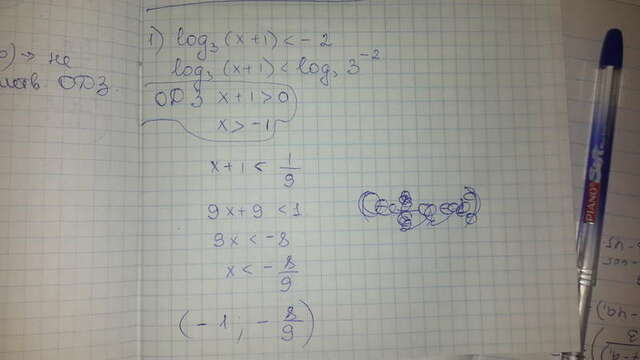 о) → не
ОДЗ.
1) log₃ (x+1) < -2
log₃ (x+1) < log₃ 3⁻²
ОДЗ x+1>0
x > -1
x+1 < 1/9
9x+9 < 1
9x < -8
x < - 8/9
(-1; - 8/9)
PIANO